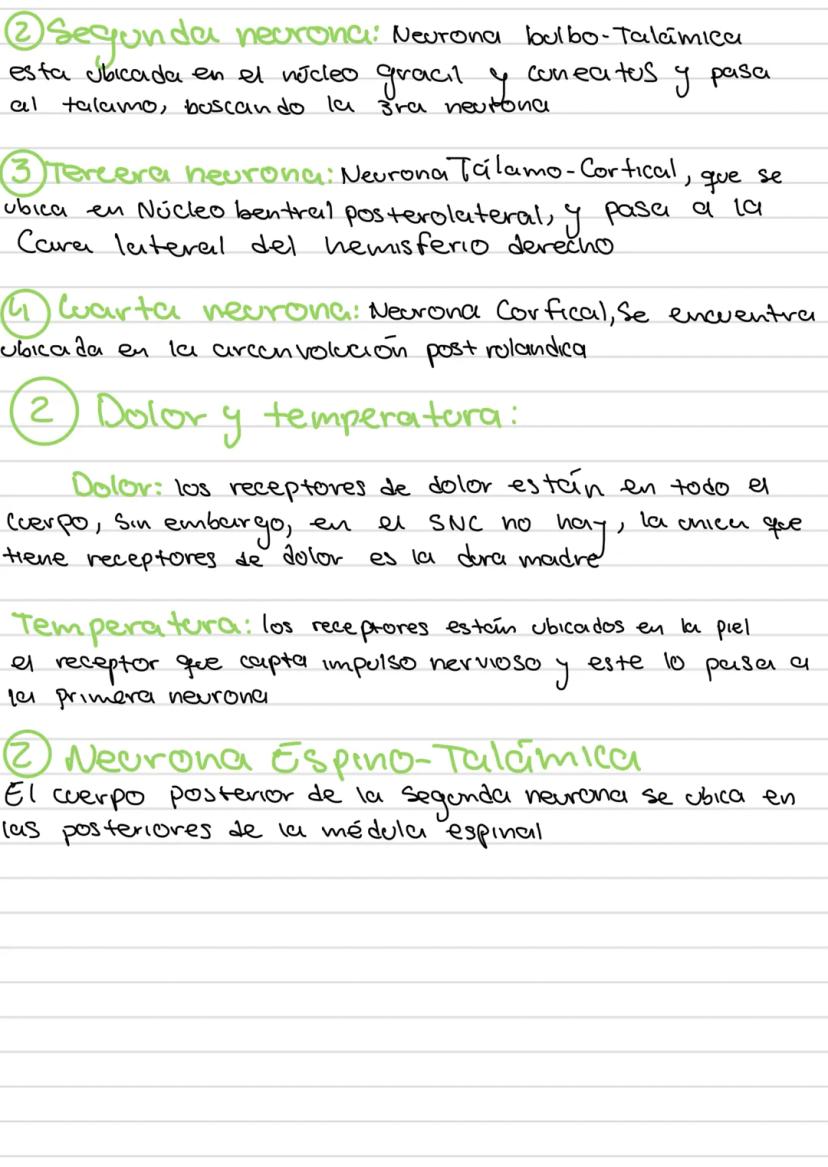 ② Segunda neurona: Neurona bulbo-Talámica
esta ubicada en el núcleo gracil y cuneatus y pasa
al talamo, buscando la 3ra neurona
③ Tercera neurona: Neurona Tálamo-Cortical, que se
ubica en Núcleo bentral posterolateral, y pasa a la
Cara lateral del hemisferio derecho
④ Cuarta neurona: Neurona Cortical, Se encuentra
ubicada en la circunvolución post rolandica
② Dolor y temperatura:
Dolor: los receptores de dolor están en todo el
cuerpo, Sin embargo, en el SNC no hay, la unica que
tiene receptores de dolor es la dura madre
Temperatura: los receptores están ubicados en la piel
el receptor que capta impulso nervioso y este lo pasa a
la primera neurona
② Neurona Espino-Talámica
El cuerpo posterior de la segunda neurona se ubica en
las posteriores de la médula espinal